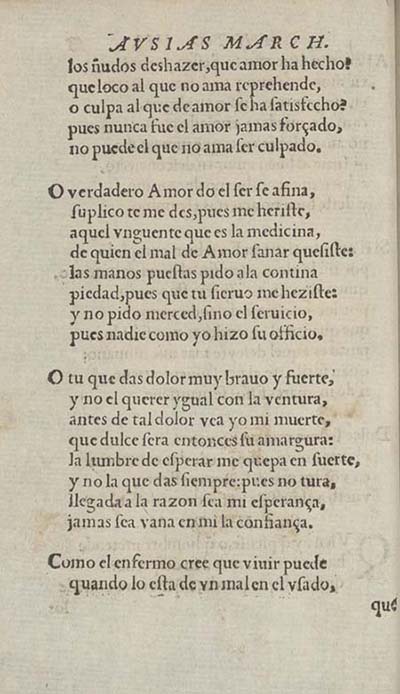 AVSIAS MARCH.
los ñudos deshazer, que amor ha hecho?
que loco al que no ama reprehende,
o culpa al que de amor se ha satisfecho?
pues nunca fue el amor jamas forçado,
no puede el que no ama ser culpado.
O verdadero Amor do el ser se afina,
suplico te me des, pues me heriste,
aquel vnguente que es la medicina,
de quien el mal de Amor sanar quesiste:
las manos puestas pido a la contina
piedad, pues que tu sieruo me heziste:
y no pido merced, sino el seruicio,
pues nadie como yo hizo su officio.
O tu que das dolor muy brauo y fuerte,
y no el querer ygual con la ventura,
antes de tal dolor vea yo mi muerte,
que dulce sera entonces su amargura:
la lumbre de esperar me quepa en suerte,
y no la que das siempre: pues no tura,
llegada a la razon sea mi esperança,
jamas sea vana en mi la confiança.
Como el enfermo cree que viuir puede
quando lo esta de vn mal en el vsado,
que